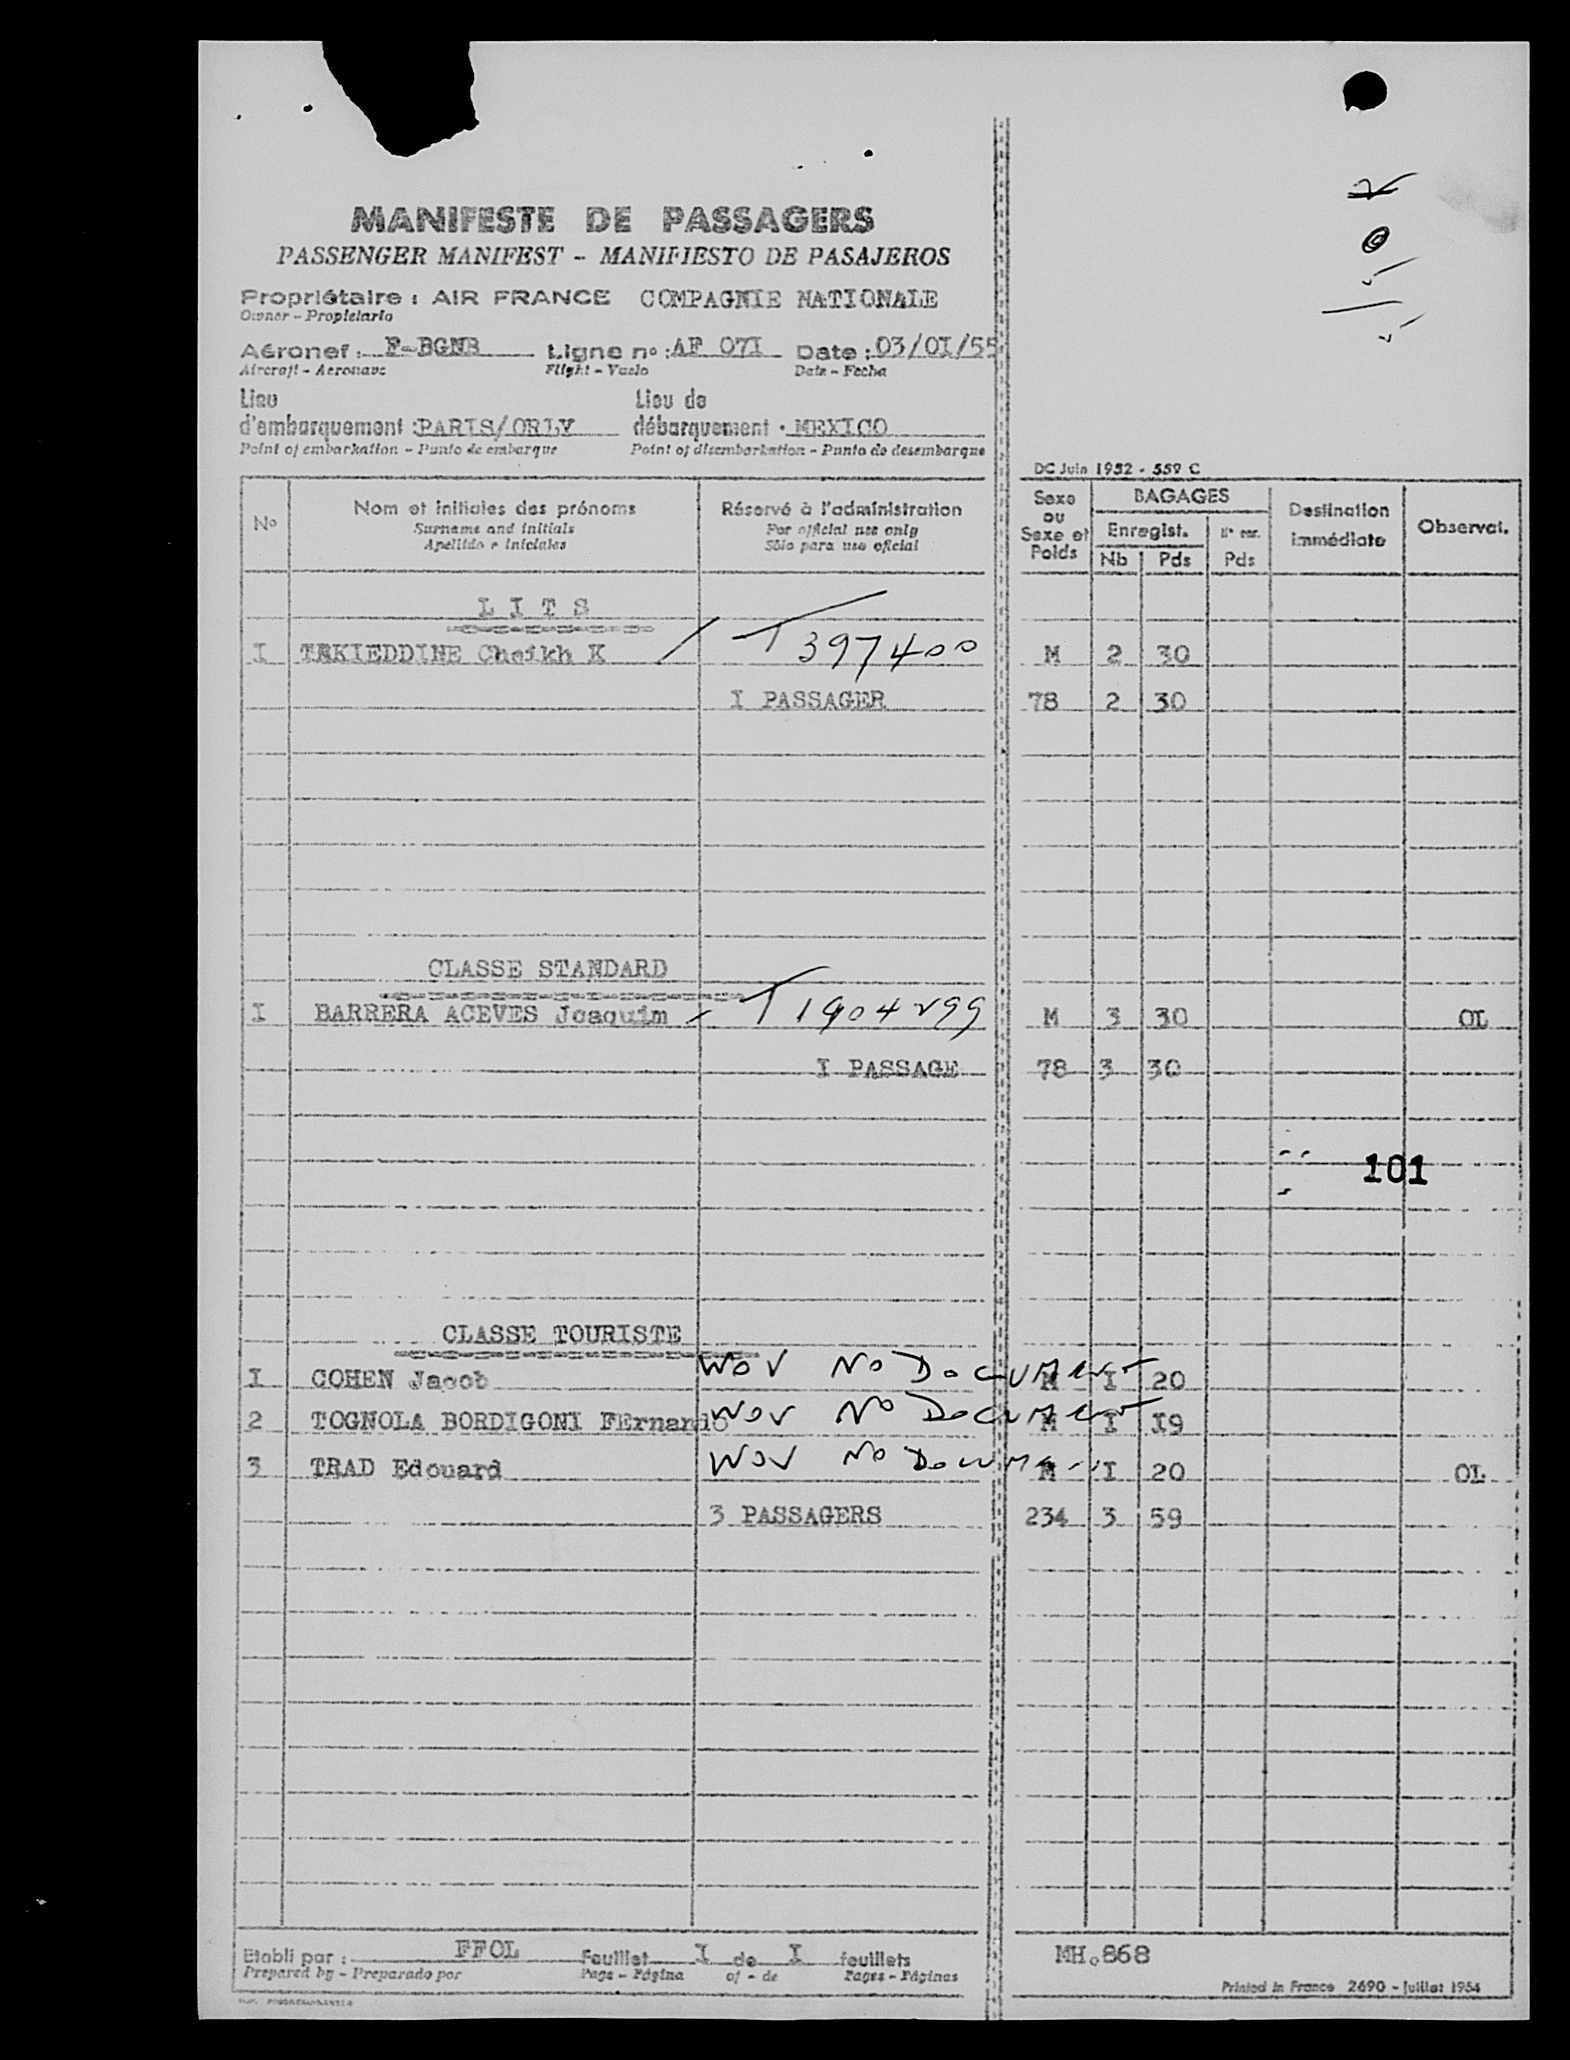 MANIFESTE DE PASSAGERS
PASSENGER MANIFEST - MANIFIESTO DE PASAJEROS
Propriétaire : AIR FRANCE COMPAGNIE NATIONALE
Owner - Propietario
Aéronef : F-BGNB Ligne no : AF 07I Date : 03/0I/55
Aircraft - Aeronave Flight - Vuelo Date - Fecha
Lieu Lieu de
d'embarquement : PARIS/ORLY débarquement : MEXICO
Point of embarkation - Punto de embarque Point of disembarkation - Punto de desembarque
DC Juin 1952 - 559 C
No Nom et initiales des prénoms Réservé à l'administration Sexe ou Sexe et Poids BAGAGES Destination immédiate Observat.
Surname and initials For official use only Enregist. Nb Pds Pds
Apellido e iniciales Sólo para uso oficial
L I T S
I TAKIEDDINE Cheikh K / T 397400 M 2 30
I PASSAGER 78 2 30
CLASSE STANDARD
I BARRERA ACEVES Joaquim T 1904299 M 3 30 OL
I PASSAGE 78 3 30
101
CLASSE TOURISTE
I COHEN Jacob WOV NO DOCUMENT M I 20
2 TOGNOLA BORDIGONI FErnando WOV NO DOCUMENT M I I9
3 TRAD Edouard WOV NO M I 20 OL
3 PASSAGERS 234 3 59
Etabli par : FFOL Feuillet I de I feuillets MH.868
Prepared by - Preparado por Page - Página of - de Pages - Páginas
Printed in France 2690 - Juillet 1954